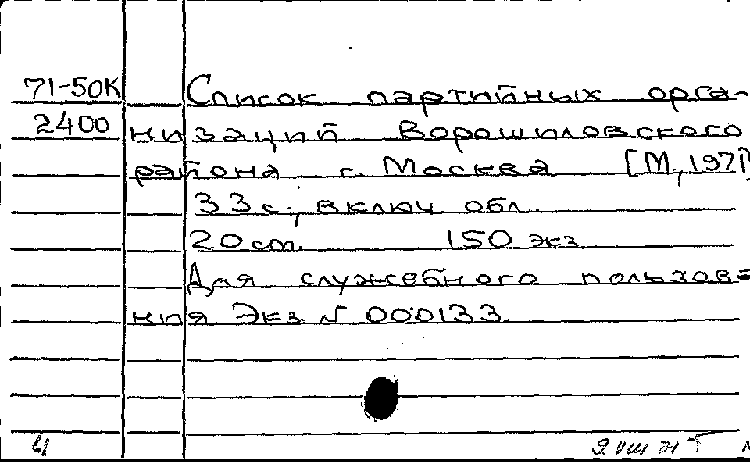 71-50К Список партийных орга-
2400 низаций Ворошиловского
района г. Москва [М, 1971]
33 с., включ обл.
20 см. 150 экз
Для служебного пользова
ния Экз N 000133